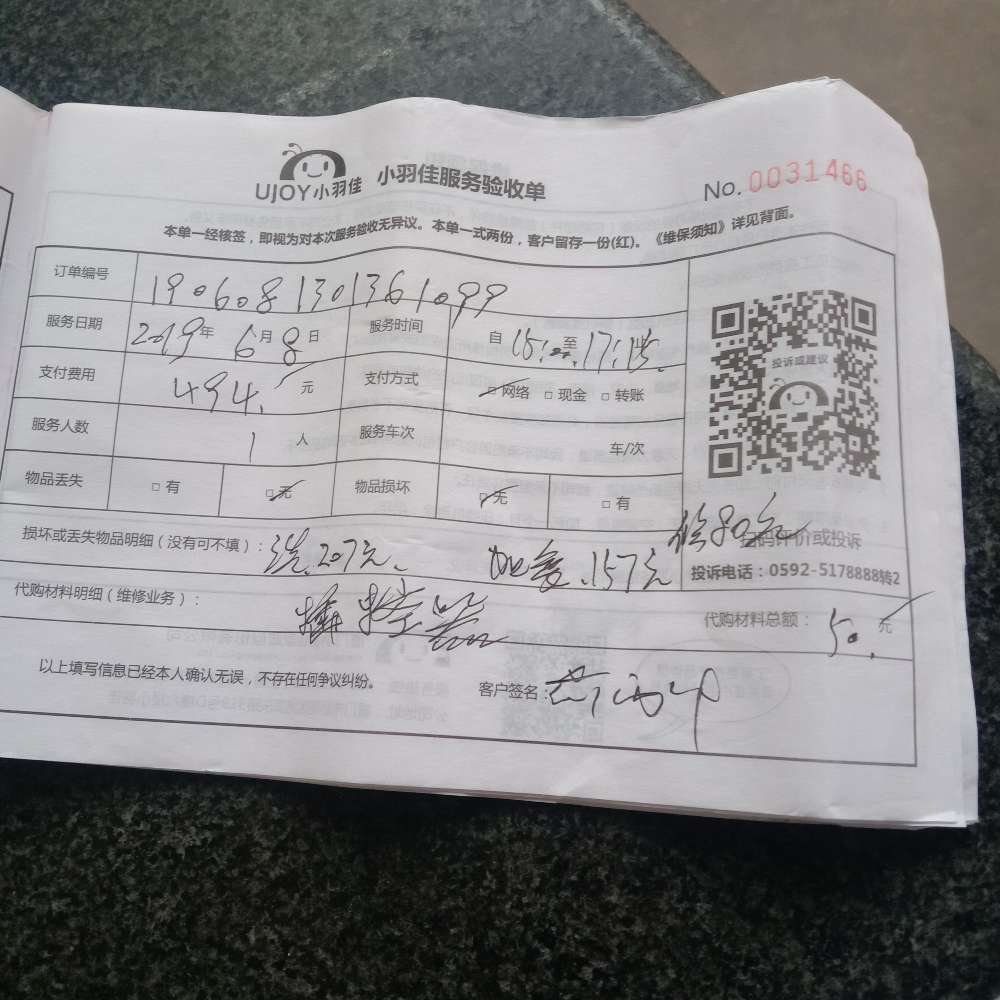 UJOY小羽佳 小羽佳服务验收单 No. 0031466
本单一经核签，即视为对本次服务验收无异议。本单一式两份，客户留存一份(红)。《维保须知》详见背面。
订单编号 1906081301361099
服务日期 2019年 6月8日 服务时间 自 15: 至 17:15
支付费用 494. 元 支付方式 □网络 □现金 □转账
服务人数 1 人 服务车次 车/次
物品丢失 □有 □无 物品损坏 □无 □有
投诉或建议
扫码评价或投诉
投诉电话：0592-5178888转2
损坏或丢失物品明细（没有可不填）： 洗.207元. 加氟.157元
代购材料明细（维修业务）： 代购材料总额： 50. 元
以上填写信息已经本人确认无误，不存在任何争议纠纷。 客户签名：